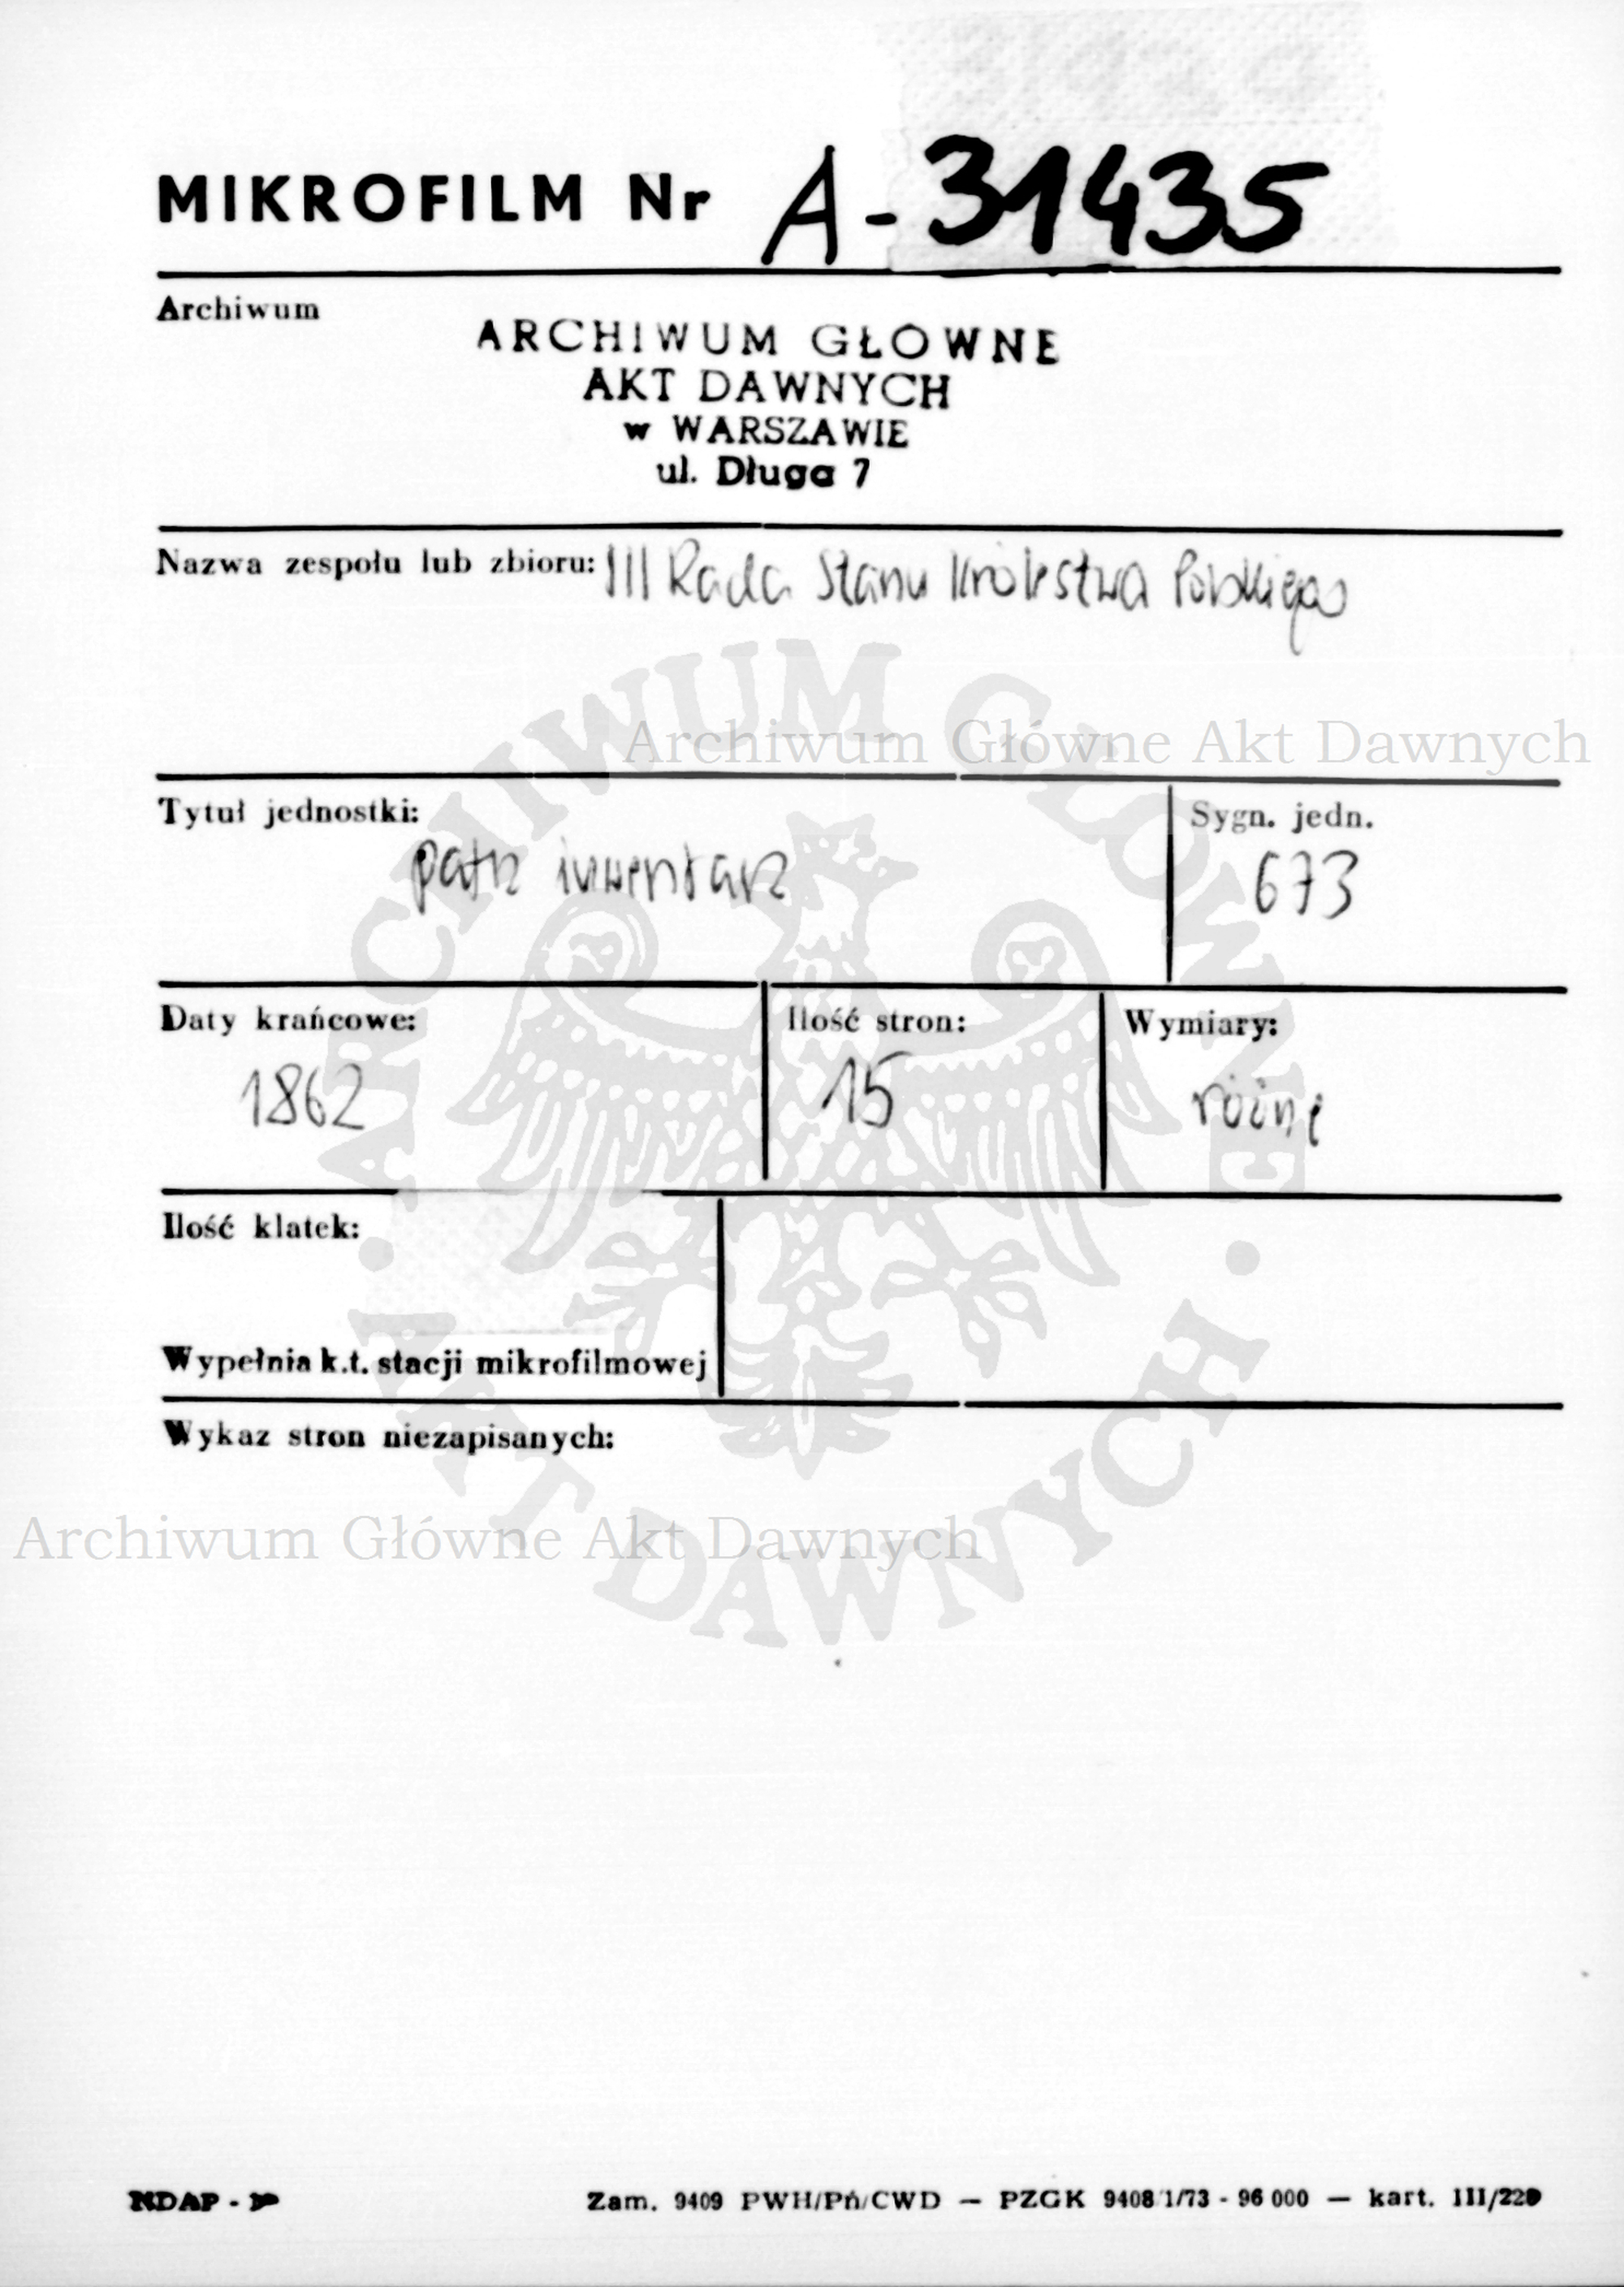 MIKROFILM Nr A-31435
Archiwum
ARCHIWUM GŁOWNE
AKT DAWNYCH
w WARSZAWIE
ul. Długa 7
Nazwa zespołu lub zbioru: III Rada Stanu Królestwa Polskiego
Archiwum Główne Akt Dawnych
Tytuł jednostki:
patrz inwentarz
Sygn. jedn.
673
Daty krańcowe:
1862
Ilość stron:
15
Wymiary:
różne
Ilość klatek:
Wypełnia k.t. stacji mikrofilmowej
Wykaz stron niezapisanych:
Archiwum Główne Akt Dawnych
ARCHIWUM GŁÓWNE · AKT DAWNYCH ·
NDAP -
Zam. 9409 PWH/Pń/CWD — PZGK 9408/1/73 - 96 000 — kart. III/220